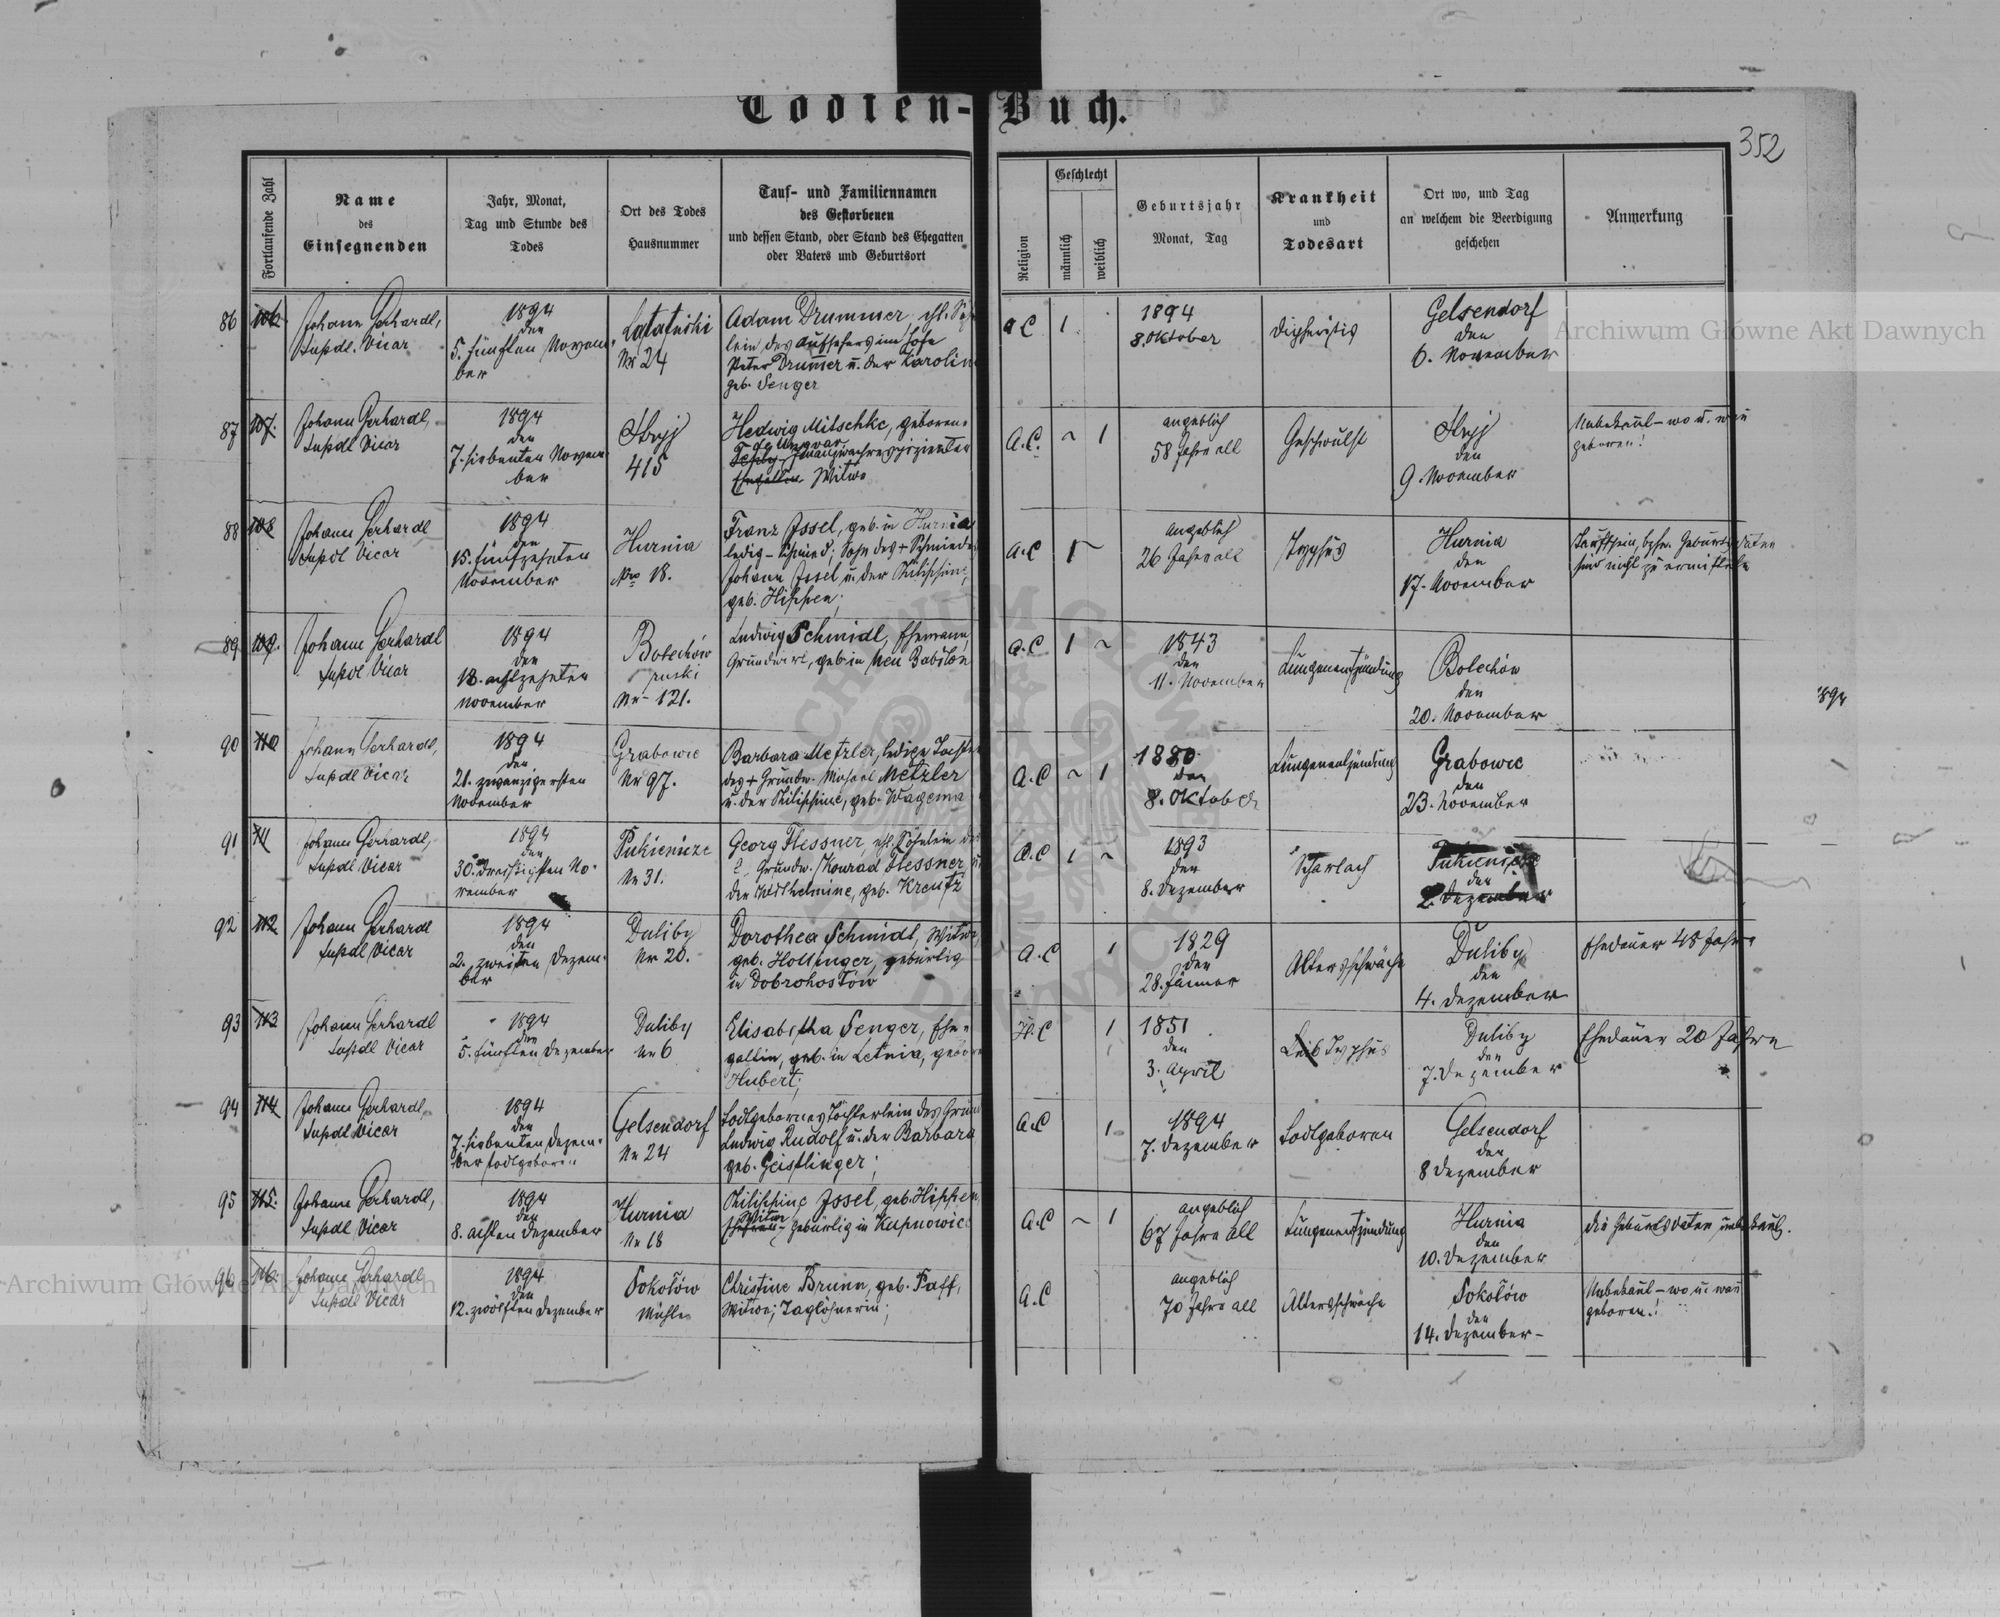 Todten-Buch.
352
Fortlaufende Zahl
Name
des
Einsegnenden
Jahr, Monat,
Tag und Stunde des
Todes
Ort des Todes
Hausnummer
Tauf- und Familiennamen
des Gestorbenen
und dessen Stand, oder Stand des Ehegatten
oder Vaters und Geburtsort
Religion
Geschlecht
männlich
weiblich
Geburtsjahr
Monat, Tag
Krankheit
und
Todesart
Ort wo, und Tag
an welchem die Beerdigung
geschehen
Anmerkung
86 106.
Johann Gerhardt,
Supdl. Vicar
1894
den
5. fünften Novem-
ber
Nr 24
Adam Drummer, ehl. Söhn
lein des Aufsehers im Hofe
Peter Drummer u. der Karolin
geb. Senger
A C 1
1894
8. Oktober
Gelsendorf
den
6. November
87 107.
Johann Gerhardt,
Supdl Vicar
1894
den
7. siebenten Novem-
ber
Stryj
415
Hedwig Mitschke, geborene
Witwe
A.C. ~ 1
angeblich
58 Jahre alt
Geschwulst
Stryj
den
9. November
Unbekant - wo u. wan
geboren!
88 108
Johann Gerhardt
Supdl Vicar
1894
den
15. fünfzehnten
November
Hurnia
Nro 18.
Franz Issel, geb. in Hurnia
ledig - Schmied; Sohn des + Schmiedes
Johann Issel u. der Philippine,
geb. Hippen;
A.C 1 ~
angeblich
26 Jahre alt
Typhus
Hurnia
den
17. November
Taufschein, bzhw. Geburtsdaten
sind nicht zu ermitteln
89 109.
Johann Gerhardt
Supdl Vicar
1894
den
18. achtzehnten
November
Bolechów
ruski
Nr - 121.
Ludwig Schmidt, Ehemann,
Grundwirt, geb in Neu Babilon
A.C 1 ~
1843
den
11. November
Lungenentzündung
Bolechów
den
20. November
1894
90 110
Johann Gerhardt,
Supdl Vicar
1894
den
21. zwanzigersten
November
Grabowic
Nr 97.
Barbara Metzler, ledige Tochter
des + Grundw. Michael Metzler
u. der Philippine, geb. Wagema
A.C ~ 1
1880
den
8. Oktober
Lungenentzündung
Grabowic
den
23. November
91 111
Johann Gerhardt,
Supdl Vicar
1894
den
30. dreissigsten No-
vember
Pukienicze
Nr 31.
Georg Hessner, ehl. Söhnlein des
Grundw. Konrad Hessner u
der Wilhelmine, geb. Kreutz
A.C 1 ~
1893
den
8. Dezember
Scharlach
Pukienicze
den
2. Dezember
92 112
Johann Gerhardt
Supdl Vicar
1894
den
2. zweiten Dezem-
ber
Duliby
Nr 20.
Dorothea Schmidt, Witwe,
geb. Hollinger, gebürtig
in Dobrohostów
A.C 1
1829
den
28. Jänner
Altersschwäche
Duliby
den
4. Dezember
Ehedauer 48 Jahre
93 113
Johann Gerhardt
Supdl Vicar
1894
den
5. fünften Dezember
Duliby
Nr 6
Elisabetha Senger, Ehe-
gattin, geb. in Letnia, gebore
Hubert;
H.C 1
1851
den
3. April
Typhus
Duliby
den
7. Dezember
Ehedauer 20 Jahre
94 114
Johann Gerhardt,
Supdl Vicar
1894
den
7. siebenten Dezem-
ber todtgeboren
Gelsendorf
Nr 24
Todtgebornes Töchterlein des Grun
Ludwig Rudolf u. der Barbara
geb. Geistlinger;
A.C 1.
1894
7. Dezember
Todtgeboren
Gelsendorf
den
8 Dezember
95 115.
Johann Gerhardt,
Supdl Vicar
1894
den
8. achten Dezember
Hurnia
Nr 18
Philippine Issel, geb. Hippen,
Witwe
gebürtig in Kupnowice
A.C ~ 1
angeblich
67 Jahre alt
Lungenentzündung
Hurnia
den
10. Dezember
Die Geburtsdaten unbekant.
96 116.
Johann Gerhardt
Supdl Vicar
1894
den
12. zwölften Dezember
Sokołów
Mühle
Christine Brunn, geb. Faff,
Witwe; Taglöhnerin;
A.C
angeblich
70 Jahre alt
Altersschwäche
Sokołów
den
14. Dezember -
Unbekant - wo u. wan
geboren.!
Archiwum Główne Akt Dawnych
Archiwum Główne Akt Dawnych
ARCHIWUM GŁÓWNE AKT DAWNYCH